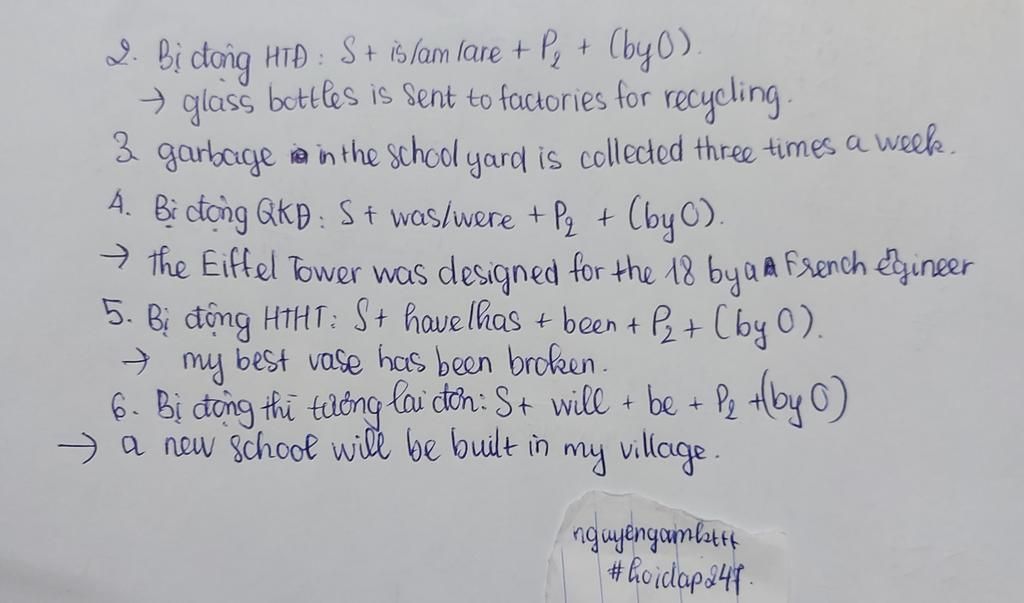 2. Bị động HTĐ: S + is/am/are + P2 + (by O).
→ glass bottles is sent to factories for recycling.
3 garbage in the school yard is collected three times a week.
4. Bị động QKĐ: S + was/were + P2 + (by O).
→ the Eiffel Tower was designed for the 18 by a French egineer
5. Bị động HTHT: S + have/has + been + P2 + (by O).
→ my best vase has been broken.
6. Bị động thì tương lai đơn: S + will + be + P2 + (by O)
→ a new school will be built in my village.
#hoidap247.